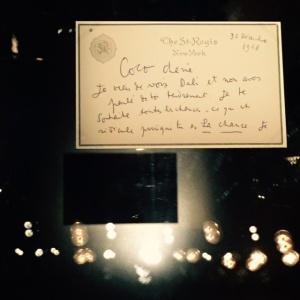 The St. Regis
New York
Coco chérie
Je viens de voir Dali et nous avons
parlé de toi tendrement Je te
souhaite toutes les chances - ce qui est
ridicule puisque tu es La chance Je